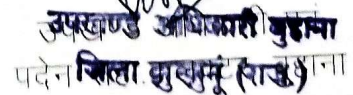 उपखण्ड अधिकारी बुहाना
पदेन जिला झुन्झुनूं (राज0)